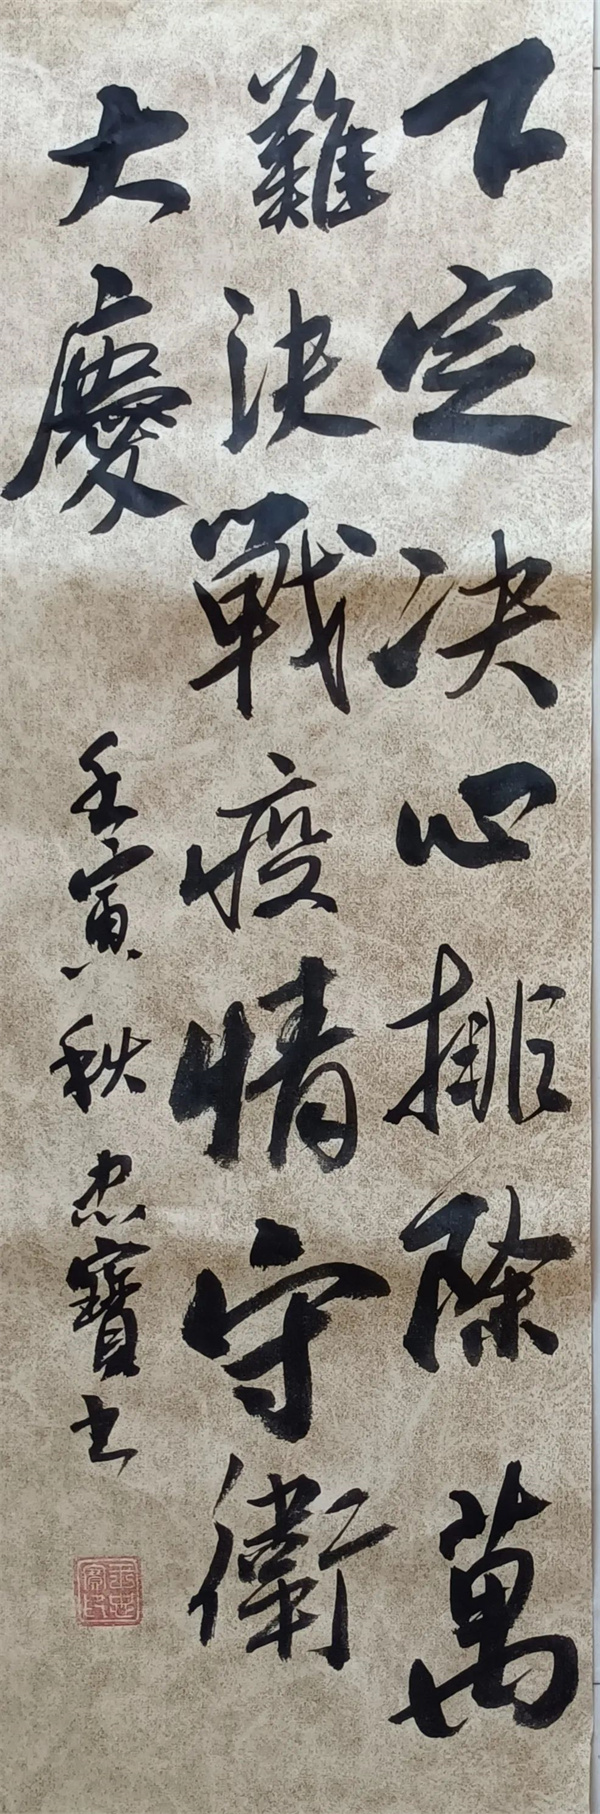 下定决心排除萬
難決戰疫情守衛
大慶
壬寅秋忠寶书